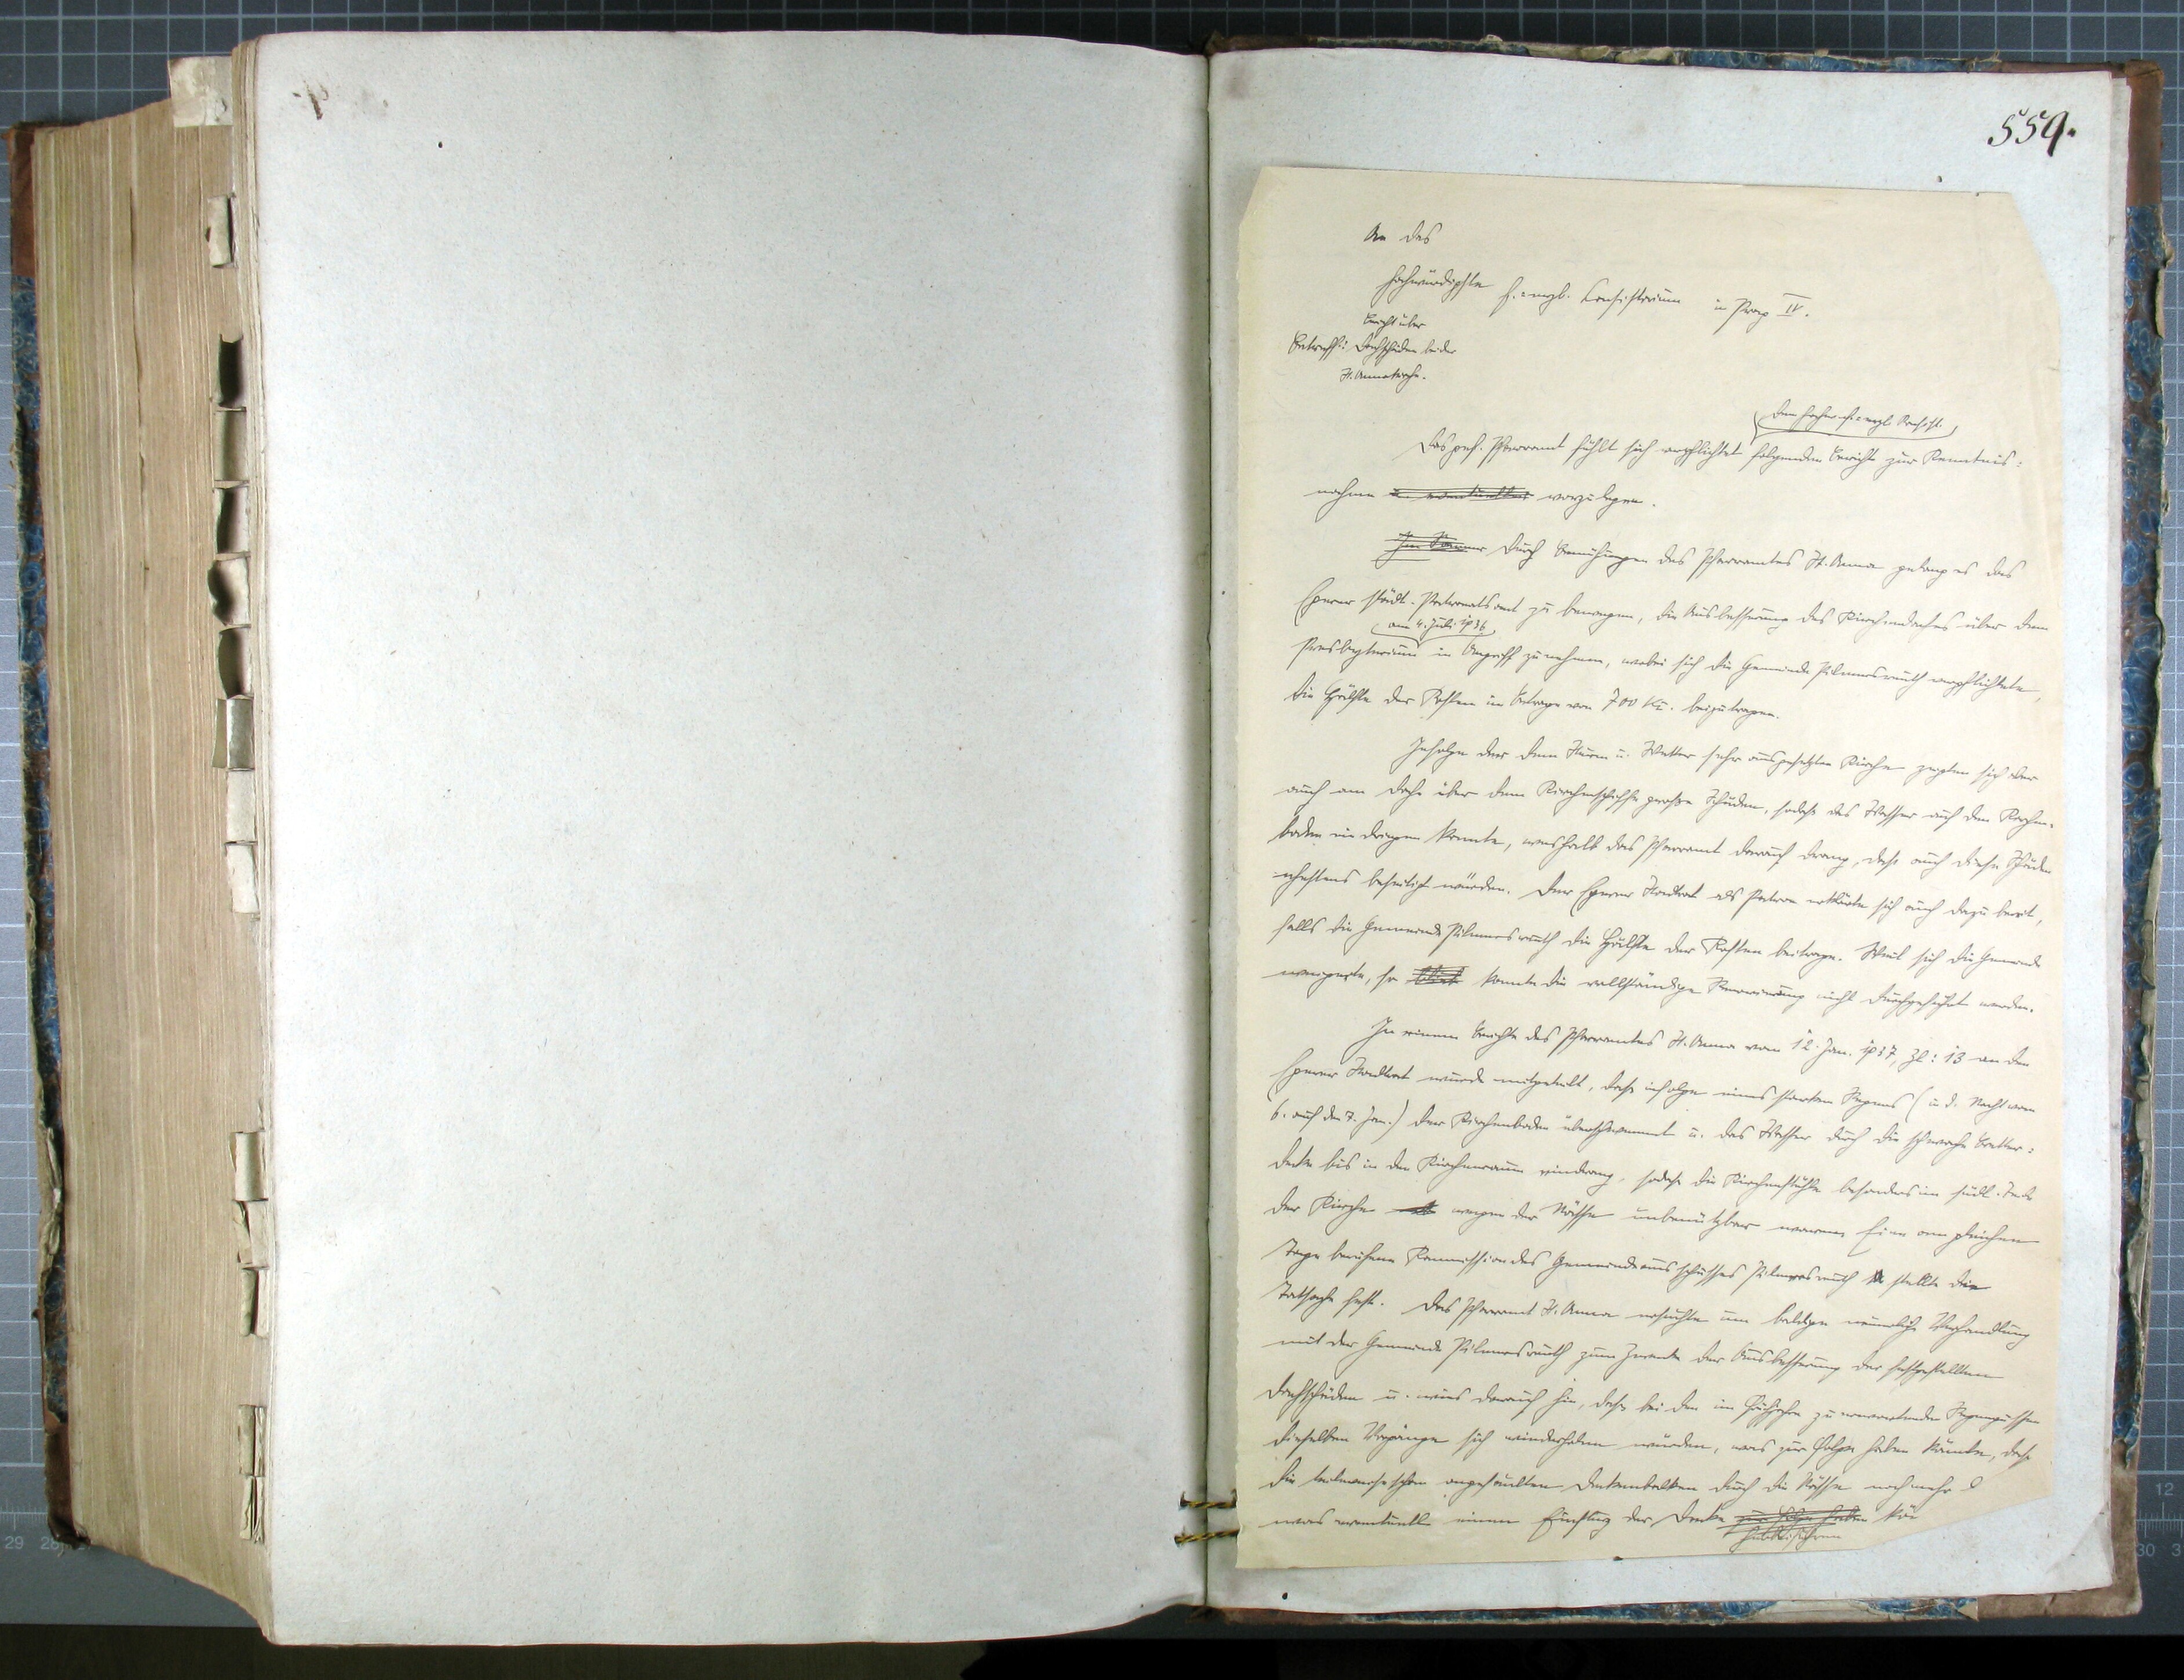 559.
An das
hochwürdigste f.-erzb. Konsistorium in Prag IV.
Bericht über
Betreff: Dachschäden bei der
St. Annakirche.
dem hochw. f.-erzb. Konsist.
Das gef. Pfarramt fühlt sich verpflichtet folgenden Bericht zur Kenntnis:
nahme u. eventuellen vorzulegen.
Im Durch Bemühungen des Pfarramtes St. Anna gelang es das
Egerer städt. Patronatsamt zu bewegen, die Ausbesserung des Kirchendaches über dem
am 4. Juli 1936
Presbyterium in Angriff zu nehmen, wobei sich die Gemeinde Pilmersreuth verpflichtete,
die Hälfte der Kosten im Betrage von 700 Kč. beizutragen.
Infolge der dem Sturm u. Wetter sehr ausgesetzten Kirche zeigten sich aber
auch am Dache über dem Kirchenschiffe große Schäden, sodaß das Wasser auf den Kirchen-
boden eindringen konnte, weshalb das Pfarramt darauf drang, daß auch diese Schäden
ehestens beseitigt würden. Der Egerer Stadtrat als Patron erklärte sich auch dazu bereit,
falls die Gemeinde Pilmersreuth die Hälfte der Kosten beitrage. Weil sich die Gemeinde
weigerte, so konnte die vollständige Renovierung nicht durchgeführt werden.
In einem Berichte des Pfarramtes St. Anna vom 12. Jan. 1937, Zl: 13 an den
Egerer Stadtrat wurde mitgeteilt, daß infolge eines starken Regens (in d. Nacht vom
6. auf den 7. Jan.) der Kirchenboden überschwemmt u. das Wasser durch die schwache Bretter:
decke bis in den Kirchenraum eindrang, sodaß die Kirchenstühle besonders im südl. Teile
der Kirche wegen der Nässe unbenützbar waren. Eine am gleichen
Tage berufene Kommission des Gemeindeausschusses Pilmersreuth stellte die
Tatsache fest. Das Pfarramt St. Anna ersuchte um baldige neuerliche Verhandlung
mit der Gemeinde Pilmersreuth zum Zwecke der Ausbesserung der festgestellten
Dachschäden u. wies darauf hin, daß bei den im Frühjahr zu erwartenden Regengüssen
dieselben Vorgänge sich wiederholen würden, was zur Folge haben könnte, daß
die teilweise schon angefaulten Deckenbalken durch die Nässe noch mehr
was eventuell einen Einsturz der Decke zur Folge haben kön
herbeiführen